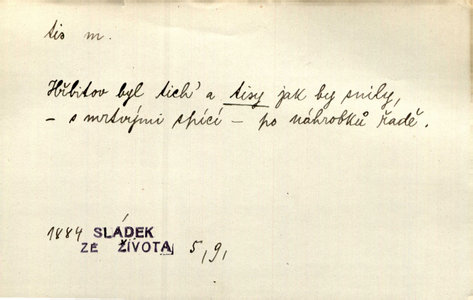 tis m.
Hřbitov byl tich' a tisy jak by snily,
– s mrtvými spící – po náhrobků řadě.
1884 SLÁDEK
ZE ŽIVOTA 5, 9,